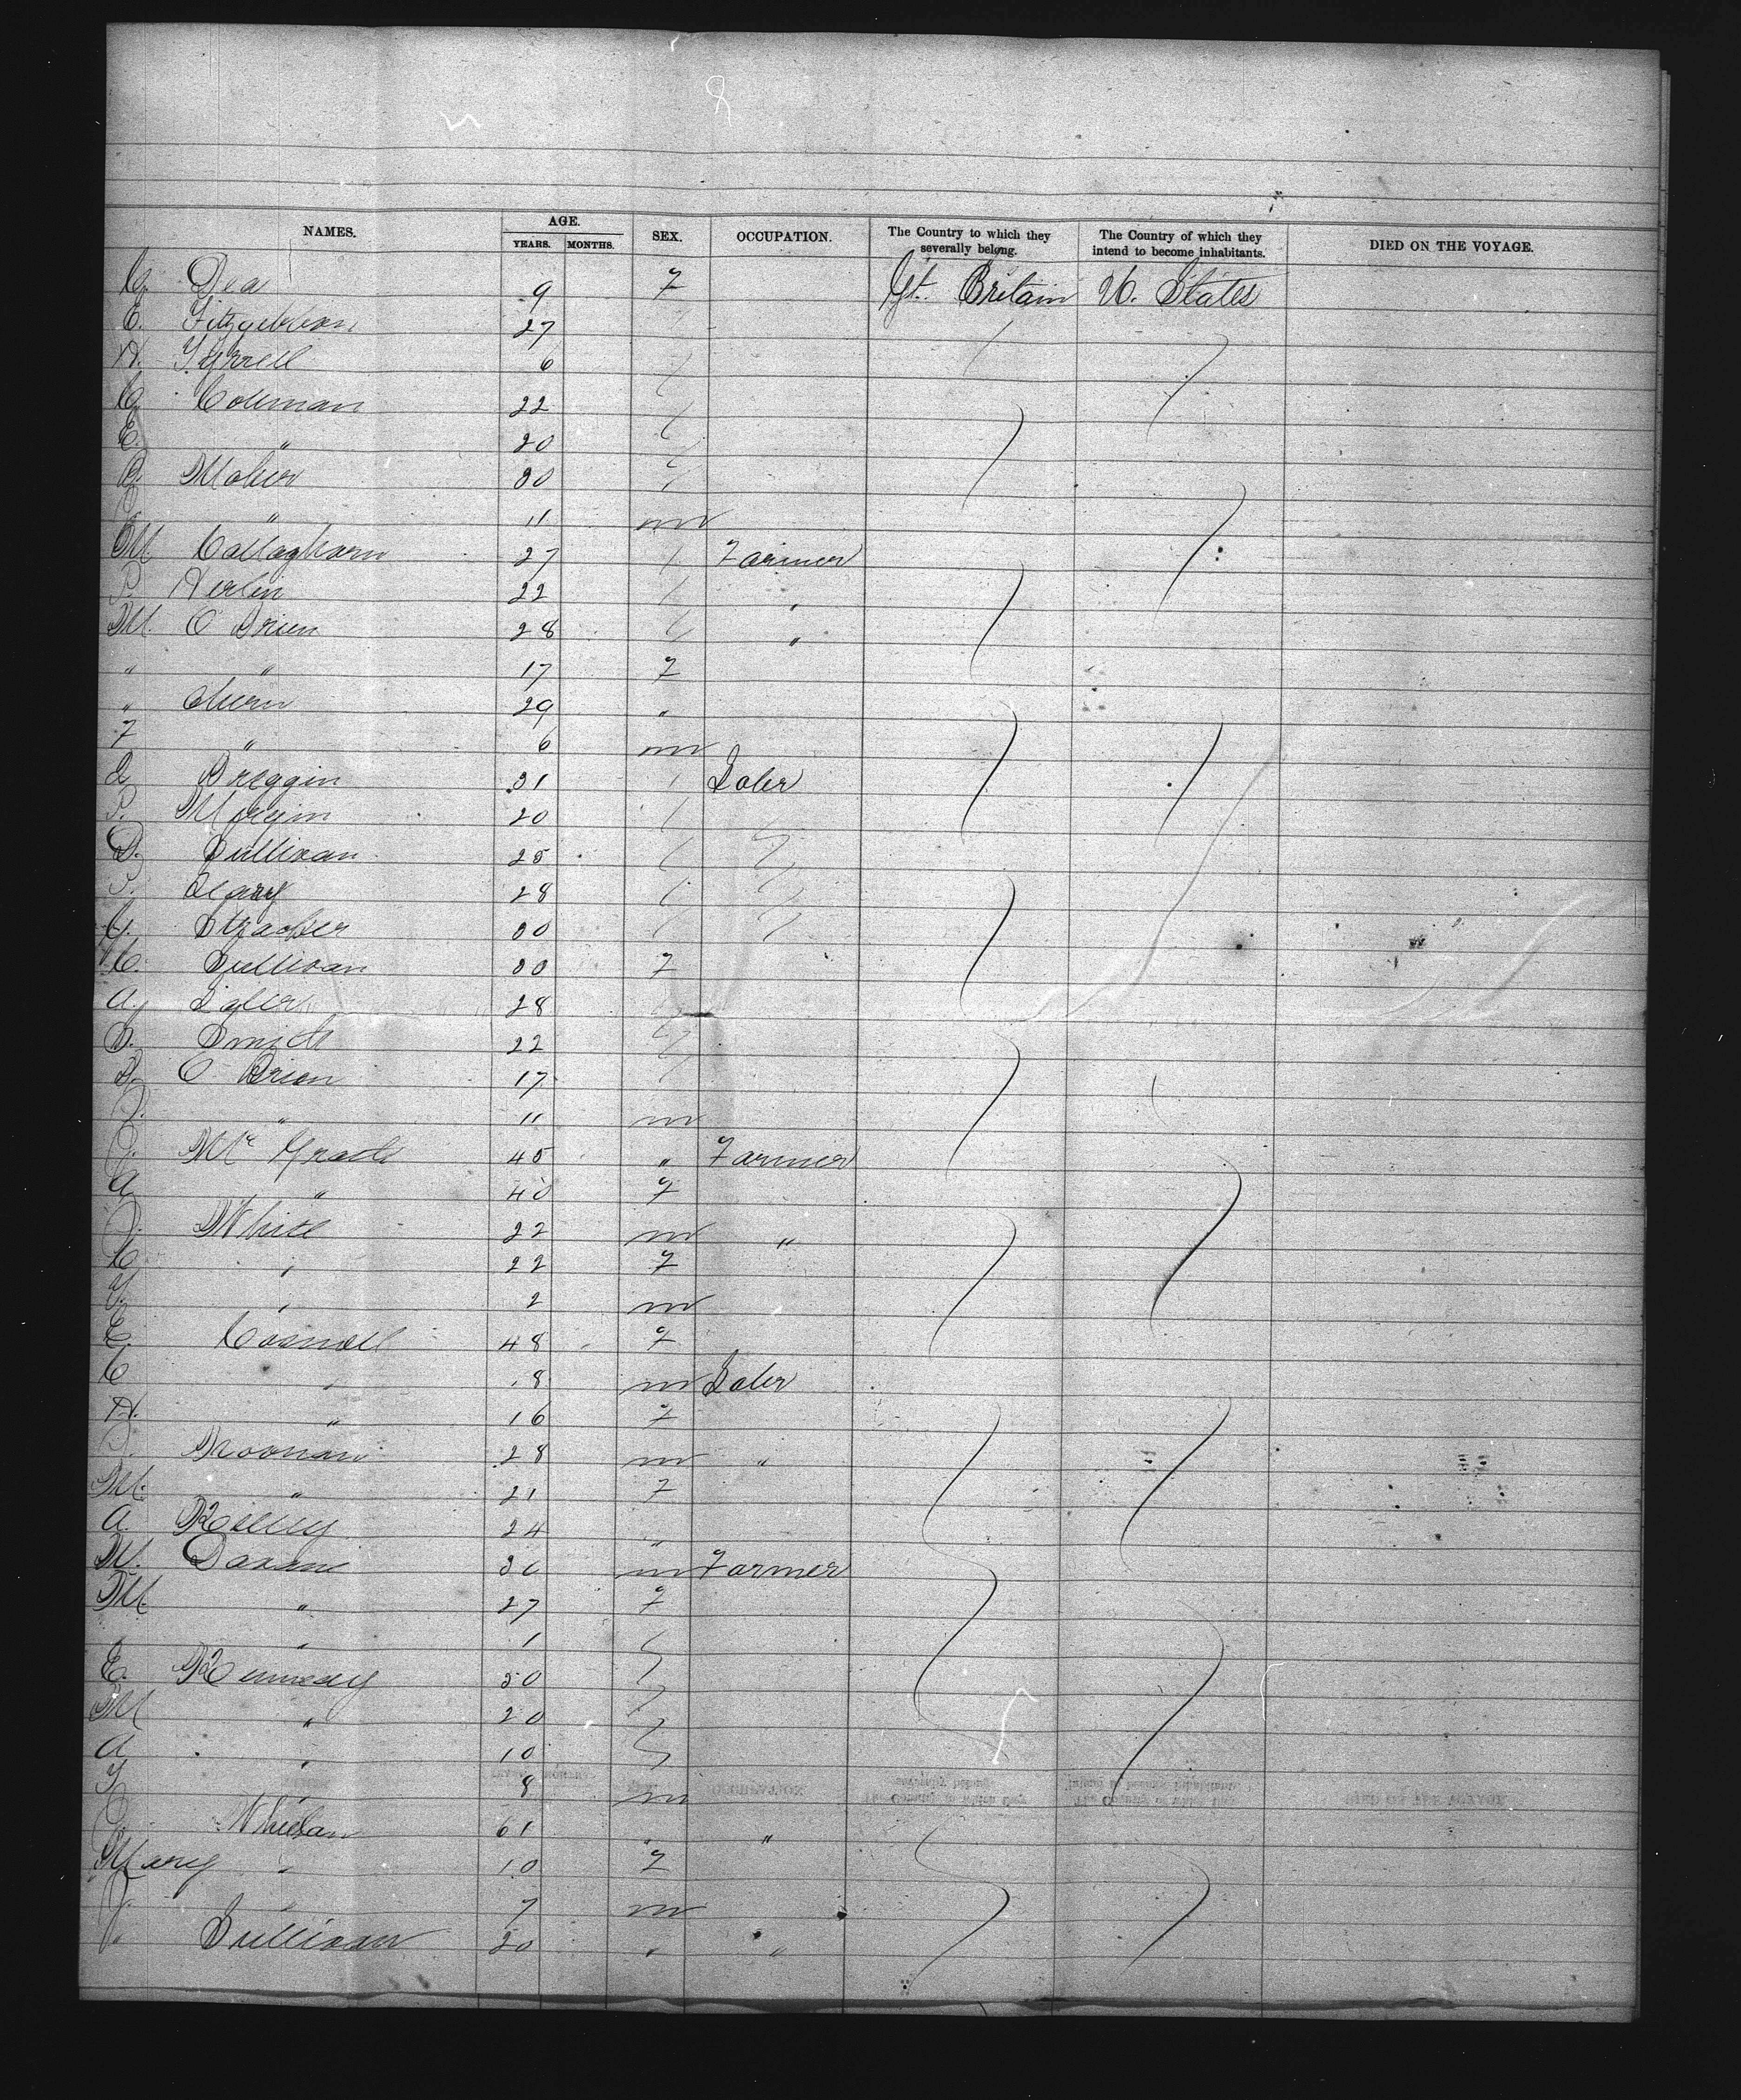 NAMES. AGE. YEARS. MONTHS. SEX. OCCUPATION. The Country to which they severally belong. The Country of which they intend to become inhabitants. DIED ON THE VOYAGE.
C. Dea 9 F Gt. Britain U. States
E. Fitzgibbon 27
H. Tyrrell 6
C. Coleman 22
E. " 20
B. Maher 30
J. " 11 m
M. Callaghan 27 Farmer
P. Herlin 22 "
M. O Brien 28 "
" " 17 F
" Ahern 29 "
F " 6 m
31 Laber
P. 20
D. Sullivan 25
28
30
C. Sullivan 30 F
A. 28
B. Smith 22
B. O Brien 17
J. " 11 m
J. Mc Grath 45 " Farmer
A " 40 F
J. White 22 m "
C. " 22 F
T. " 2 m
E. Connell 48 F
C " 18 m Laber
H. " 16 F
D. Noonan 28 m "
M. " 21 F
A. Kelly 24 "
M. 36 m Farmer
M " 27 F
" " 1
E. Kennedy 50
M " 20
A " 10
T " 8 m
J. Whelan 61 " "
Mary " 10 F
J. " 7 m
" Sullivan 20 " "